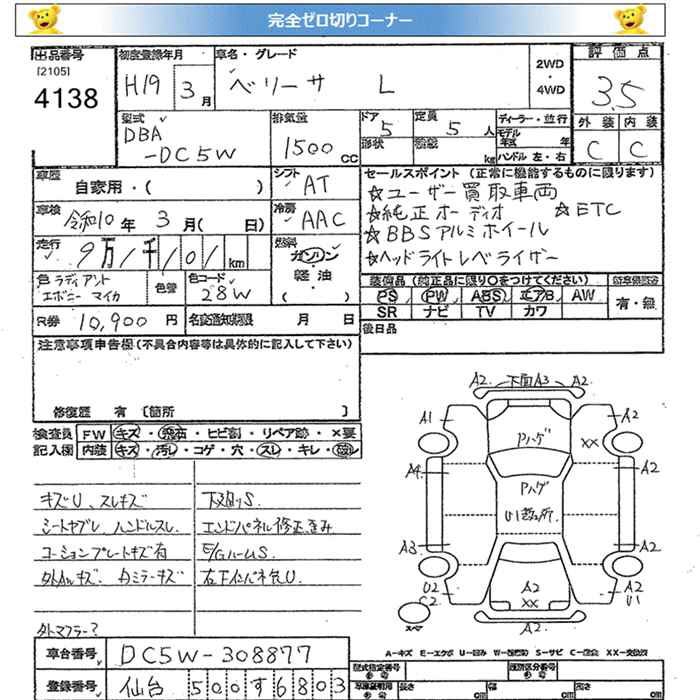 完全ゼロ切りコーナー
出品番号
[2105]
4138
初度登録年月
H19 3月
車名・グレード
ベリーサ L
2WD
・
4WD
評価点
3.5
外装 内装
C C
型式
DBA
-DC5W
排気量
1500 CC
ドア 5
形状
定員 5 人
kg
ディーラー・並行
モデル
年式 年
ハンドル 左・右
車歴
自家用・( )
シフト
AT
車検
令和10年 3月( 日)
冷房
AAC
走行
9万/千/0/ km
燃料
ガソリン
軽油
( )
色 ラディアント
エボニー マイカ
色替
色コード
28W
R券 10,900 円
名変通知期限 月 日
セールスポイント (正常に機能するものに限ります)
☆ユーザー買取車両
☆純正オーディオ ☆ETC
☆BBSアルミホイール
☆ヘッドライトレベライザー
装備品 (純正品に限り○をつけてください)
PS PW ABS エアB AW
SR ナビ TV カワ
有・無
後日品
注意事項申告欄 (不具合内容等は具体的に記入して下さい)
修復歴 有 [箇所 ]
検査員
記入欄
FW キズ・飛石・ヒビ割・リペア跡・×要
内装 キズ・汚レ・コゲ・穴・スレ・キレ・
キズU、スレキズ
シートヤブレ、ハンドルスレ
コーションプレートキズ有
外AWキズ、
外マフラー?
下廻りS.
エンドパネル修正歪み
E/GルームS.
A2 下面A3 A2
A1 A2
Pハゲ XX
A4 A2
Pハゲ
U1数ヶ所
A3 A2
U2
C2
A2
XX
A2
U1
スペア
A2
A-キズ E-エクボ U-凹み W-波 S-サビ C-腐食 XX-交換済
車台番号 DC5W-308877
登録番号 仙台 500す6803
型式指定番号
類別区分番号
長さ cm 幅 cm 高さ cm